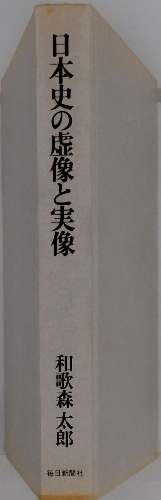 日本史の虚像と実像
和歌森太郎
毎日新聞社